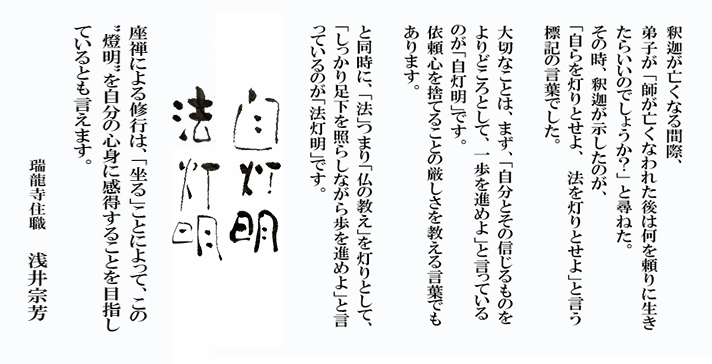 釈迦が亡くなる間際、
弟子が「師が亡くなわれた後は何を頼りに生き
たらいいのでしょうか?」と尋ねた。
その時、釈迦が示したのが、
「自らを灯りとせよ、法を灯りとせよ」と言う
標記の言葉でした。
大切なことは、まず、「自分とその信じるものを
よりどころとして、一歩を進めよ」と言っている
のが「自灯明」です。
依頼心を捨てることの厳しさを教える言葉でも
あります。
と同時に、「法」つまり「仏の教え」を灯りとして、
「しっかり足下を照らしながら歩を進めよ」と言
っているのが「法灯明」です。
自灯明
法灯明
座禅による修行は、「坐る」ことによって、この
〝燈明〟を自分の心身に感得することを目指し
ているとも言えます。
瑞龍寺住職 浅井宗芳